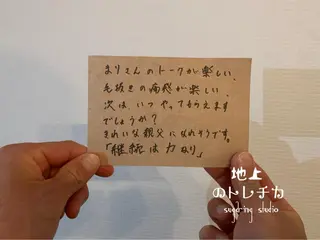 まりさんのトークが楽しい、
毛抜きの痛感が楽しい、
次は、いつやってもらえます
でしょうか?
きれいな親父になれそうです。
「継続は力なり」
地上
のトレチカ
sugaring studio